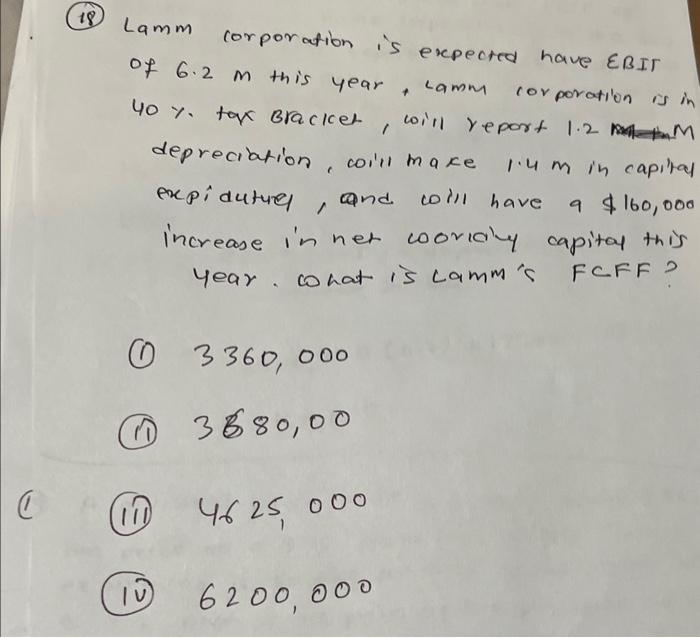 18 Lamm corporation is expected have EBIT
of 6.2 M this year, Lamm corporation is in
40 %. tax Bracket, will report 1.2 M
depreciation, will make 1.4 m in capital
expidutures, and will have a $160,000
increase in net woorking capital this
year. what is Lamm's FCFF?
(i) 3360,000
(ii) 3680,00
( (iii) 4625,000
(iv) 6200,000